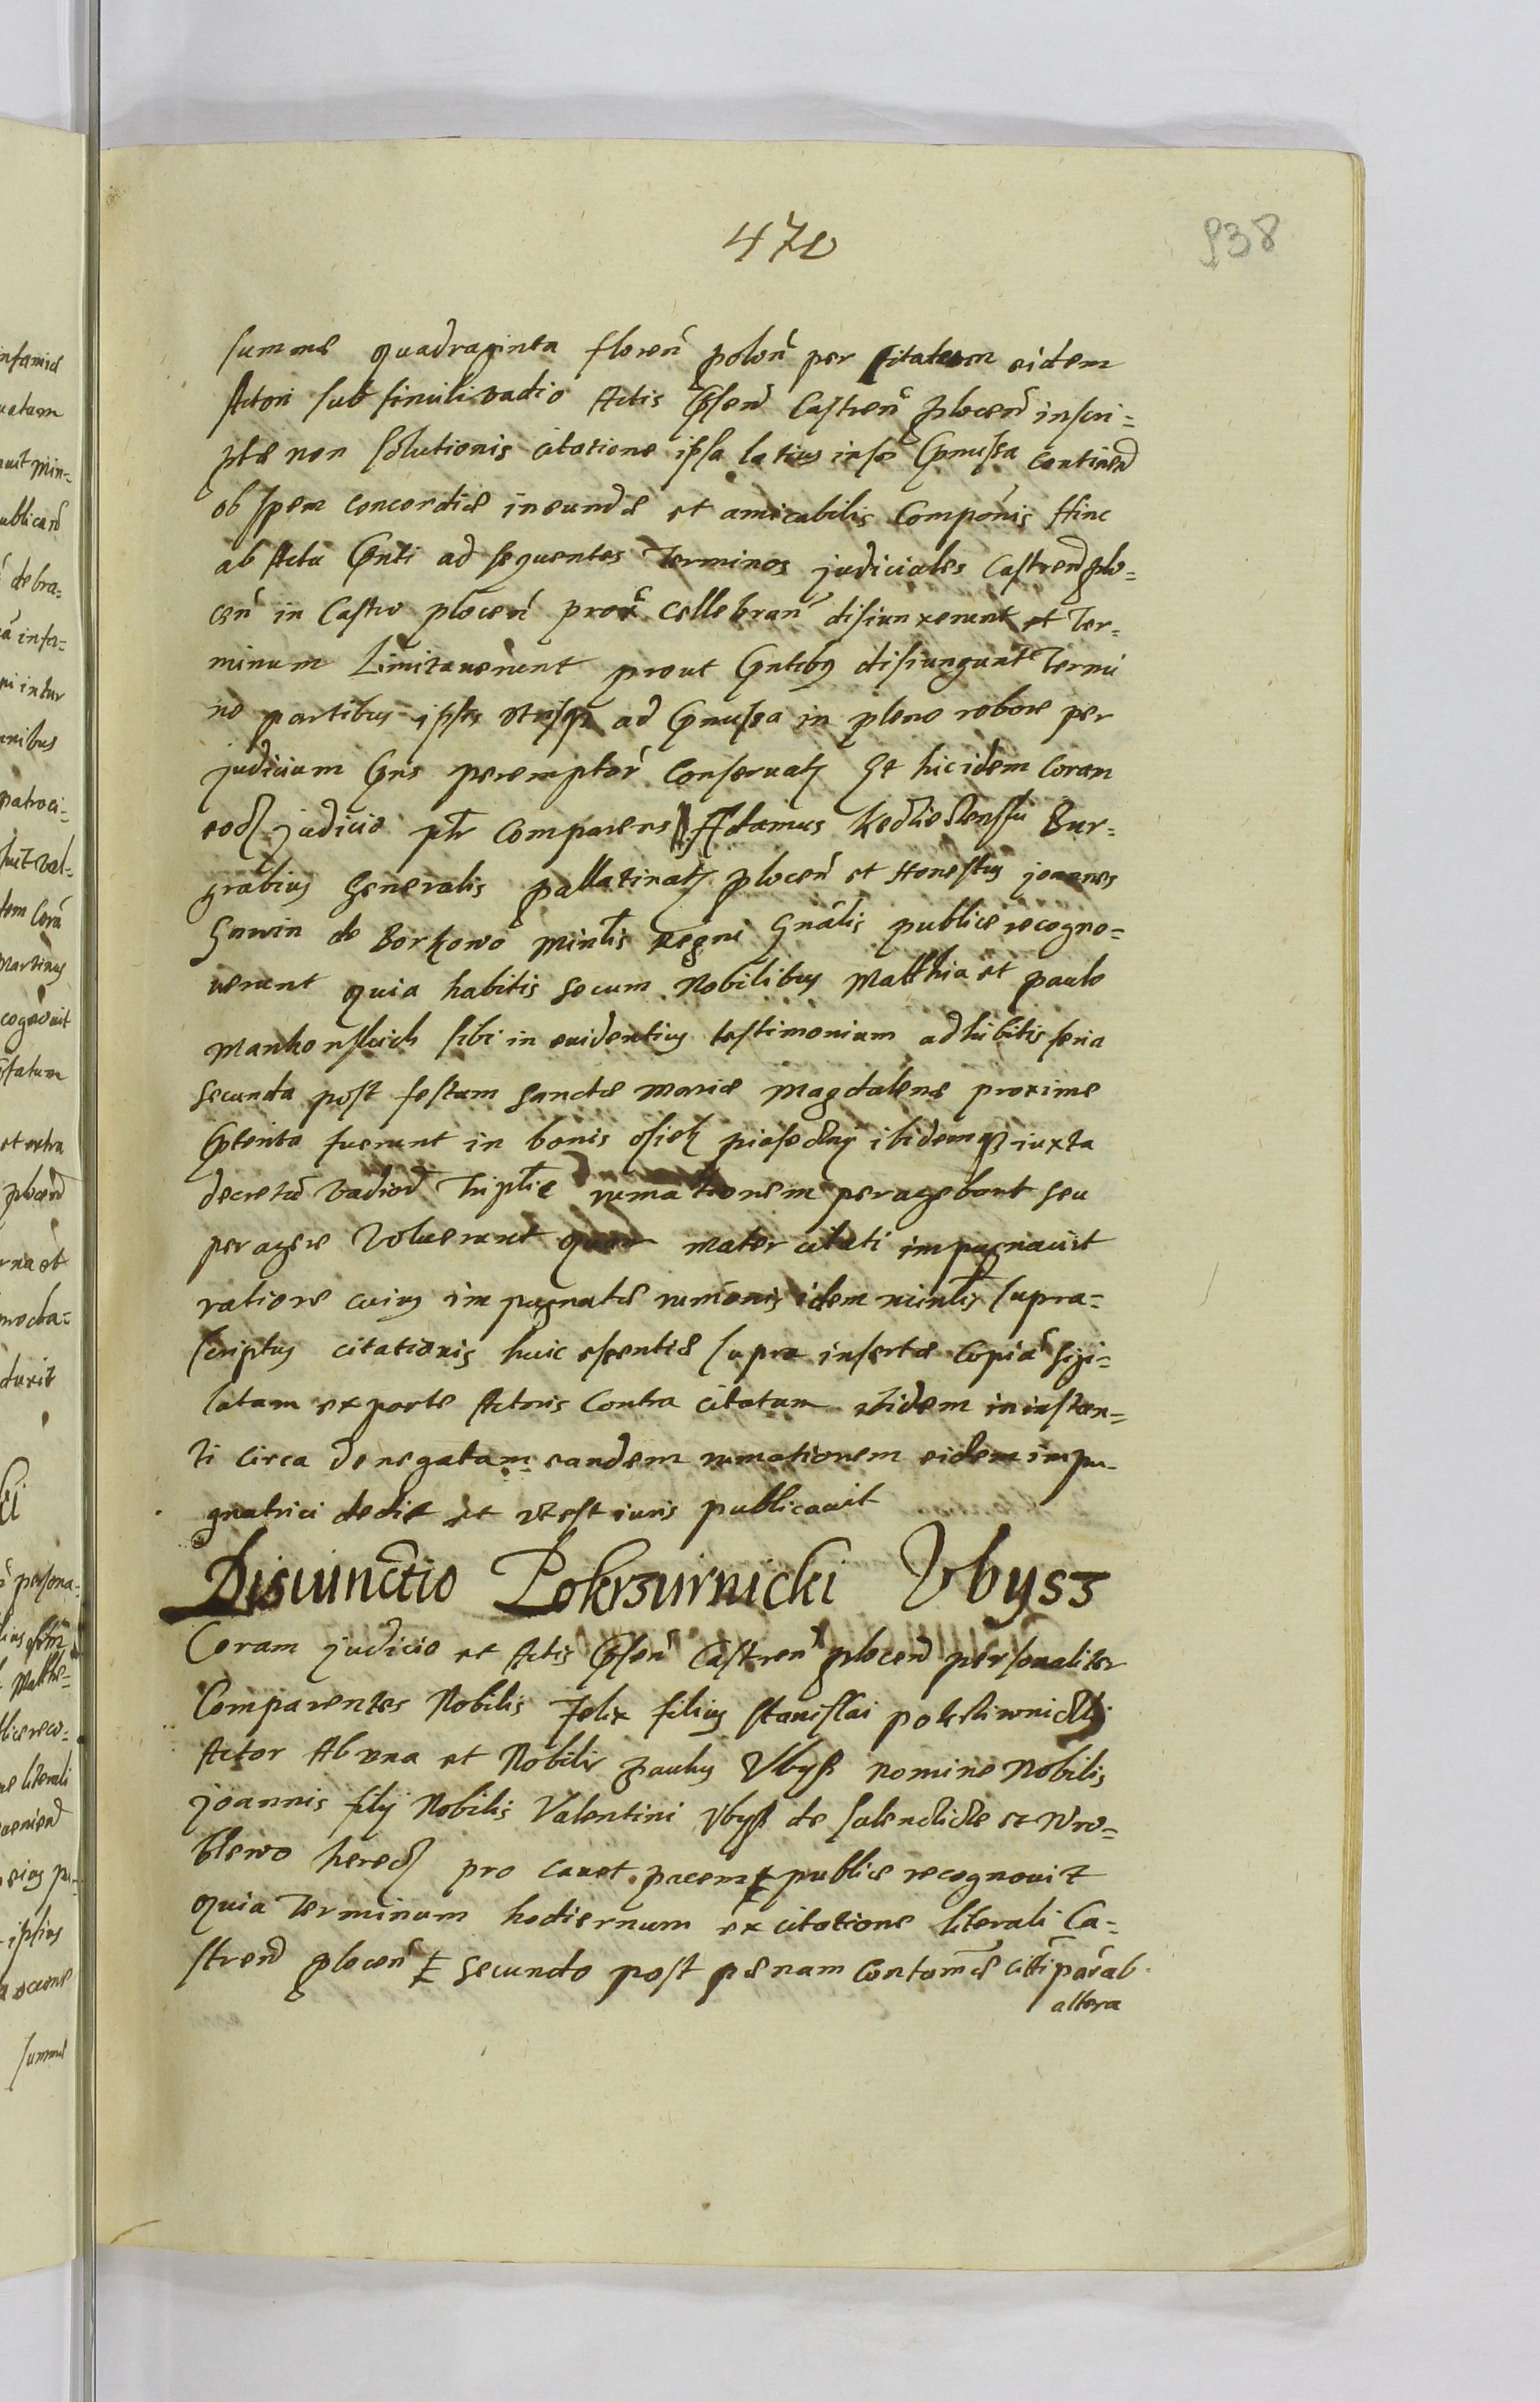 470
938
summæ quadraginta floreñ poloñ per citatum eidem
Actori sub simili vadio Actis Pñseñ Castreñ ploceñ inscri=
ptæ non solutionis citatione ipsa latius inse Pmissa continen
ob spem concordiæ ineundæ et amicabilis Componis Hinc
ab Actu Pnti ad sequentes Terminos judiciales Castreñ plo=
ceñ in Castro ploceñ prox Cellebrañ disiunxerunt et Ter=
minum Limitauerunt prout Pntibus disiungunt Termi
no partibus ipsis utrisque ad Pmissa in pleno robore per
judicium Pns peremptor Conseruatus Et hic idem Coram
eod judicio ptr Comparens Adamus Bur=
grabius Generalis pallatinatus ploceñ et Honestus joannes
de Borkowo Mintlis regni Gnalis publice recogno=
uerunt quia habitis secum Nobilibus Matthia et paulo
Mankonskich sibi in euidentius testimonium adhibitis feria
secunda post festum sanctæ Mariæ Magdalenæ proxime
Pterito fuerunt in bonis osiek ibidemque iuxta
decretu vadiorum Triplicis rumationem peragebant seu
peragere Voluerunt quam mater citati impugnauit
ratione cuius impugnatæ rumonis idem mintlis supra=
scriptus citationis huic sentétiæ supra insertæ Copia sigi=
latam ex parte Actoris Contra citatum ibidem in instan=
ti circa denegatam eandem rumationem eidem impu=
gnatrici dedit et ut est iuris publicauit
Disiunctio Pokrziwnicki Vbysz
Coram judicio et Actis Pñseñ Castreñ ploceñ personaliter
Comparentes Nobilis Felix filius stanislai pokrziwnicki
Actor Ab una et Nobilis paulus Vbysz nomine Nobilis
joannis filij Nobilis Valentini Vbysz de et Wro=
blewo hered pro cauet pacem publice recognouit
quia Terminum hodiernum ex citatione literali Ca=
streñ ploceñ secundo post pænam Contomæ citi par ab
altera